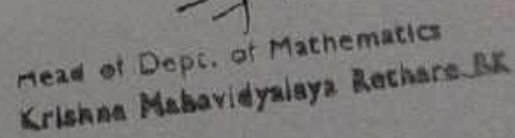 Head of Dept. of Mathematics
Krishna Mahavidyalaya Rethare BK